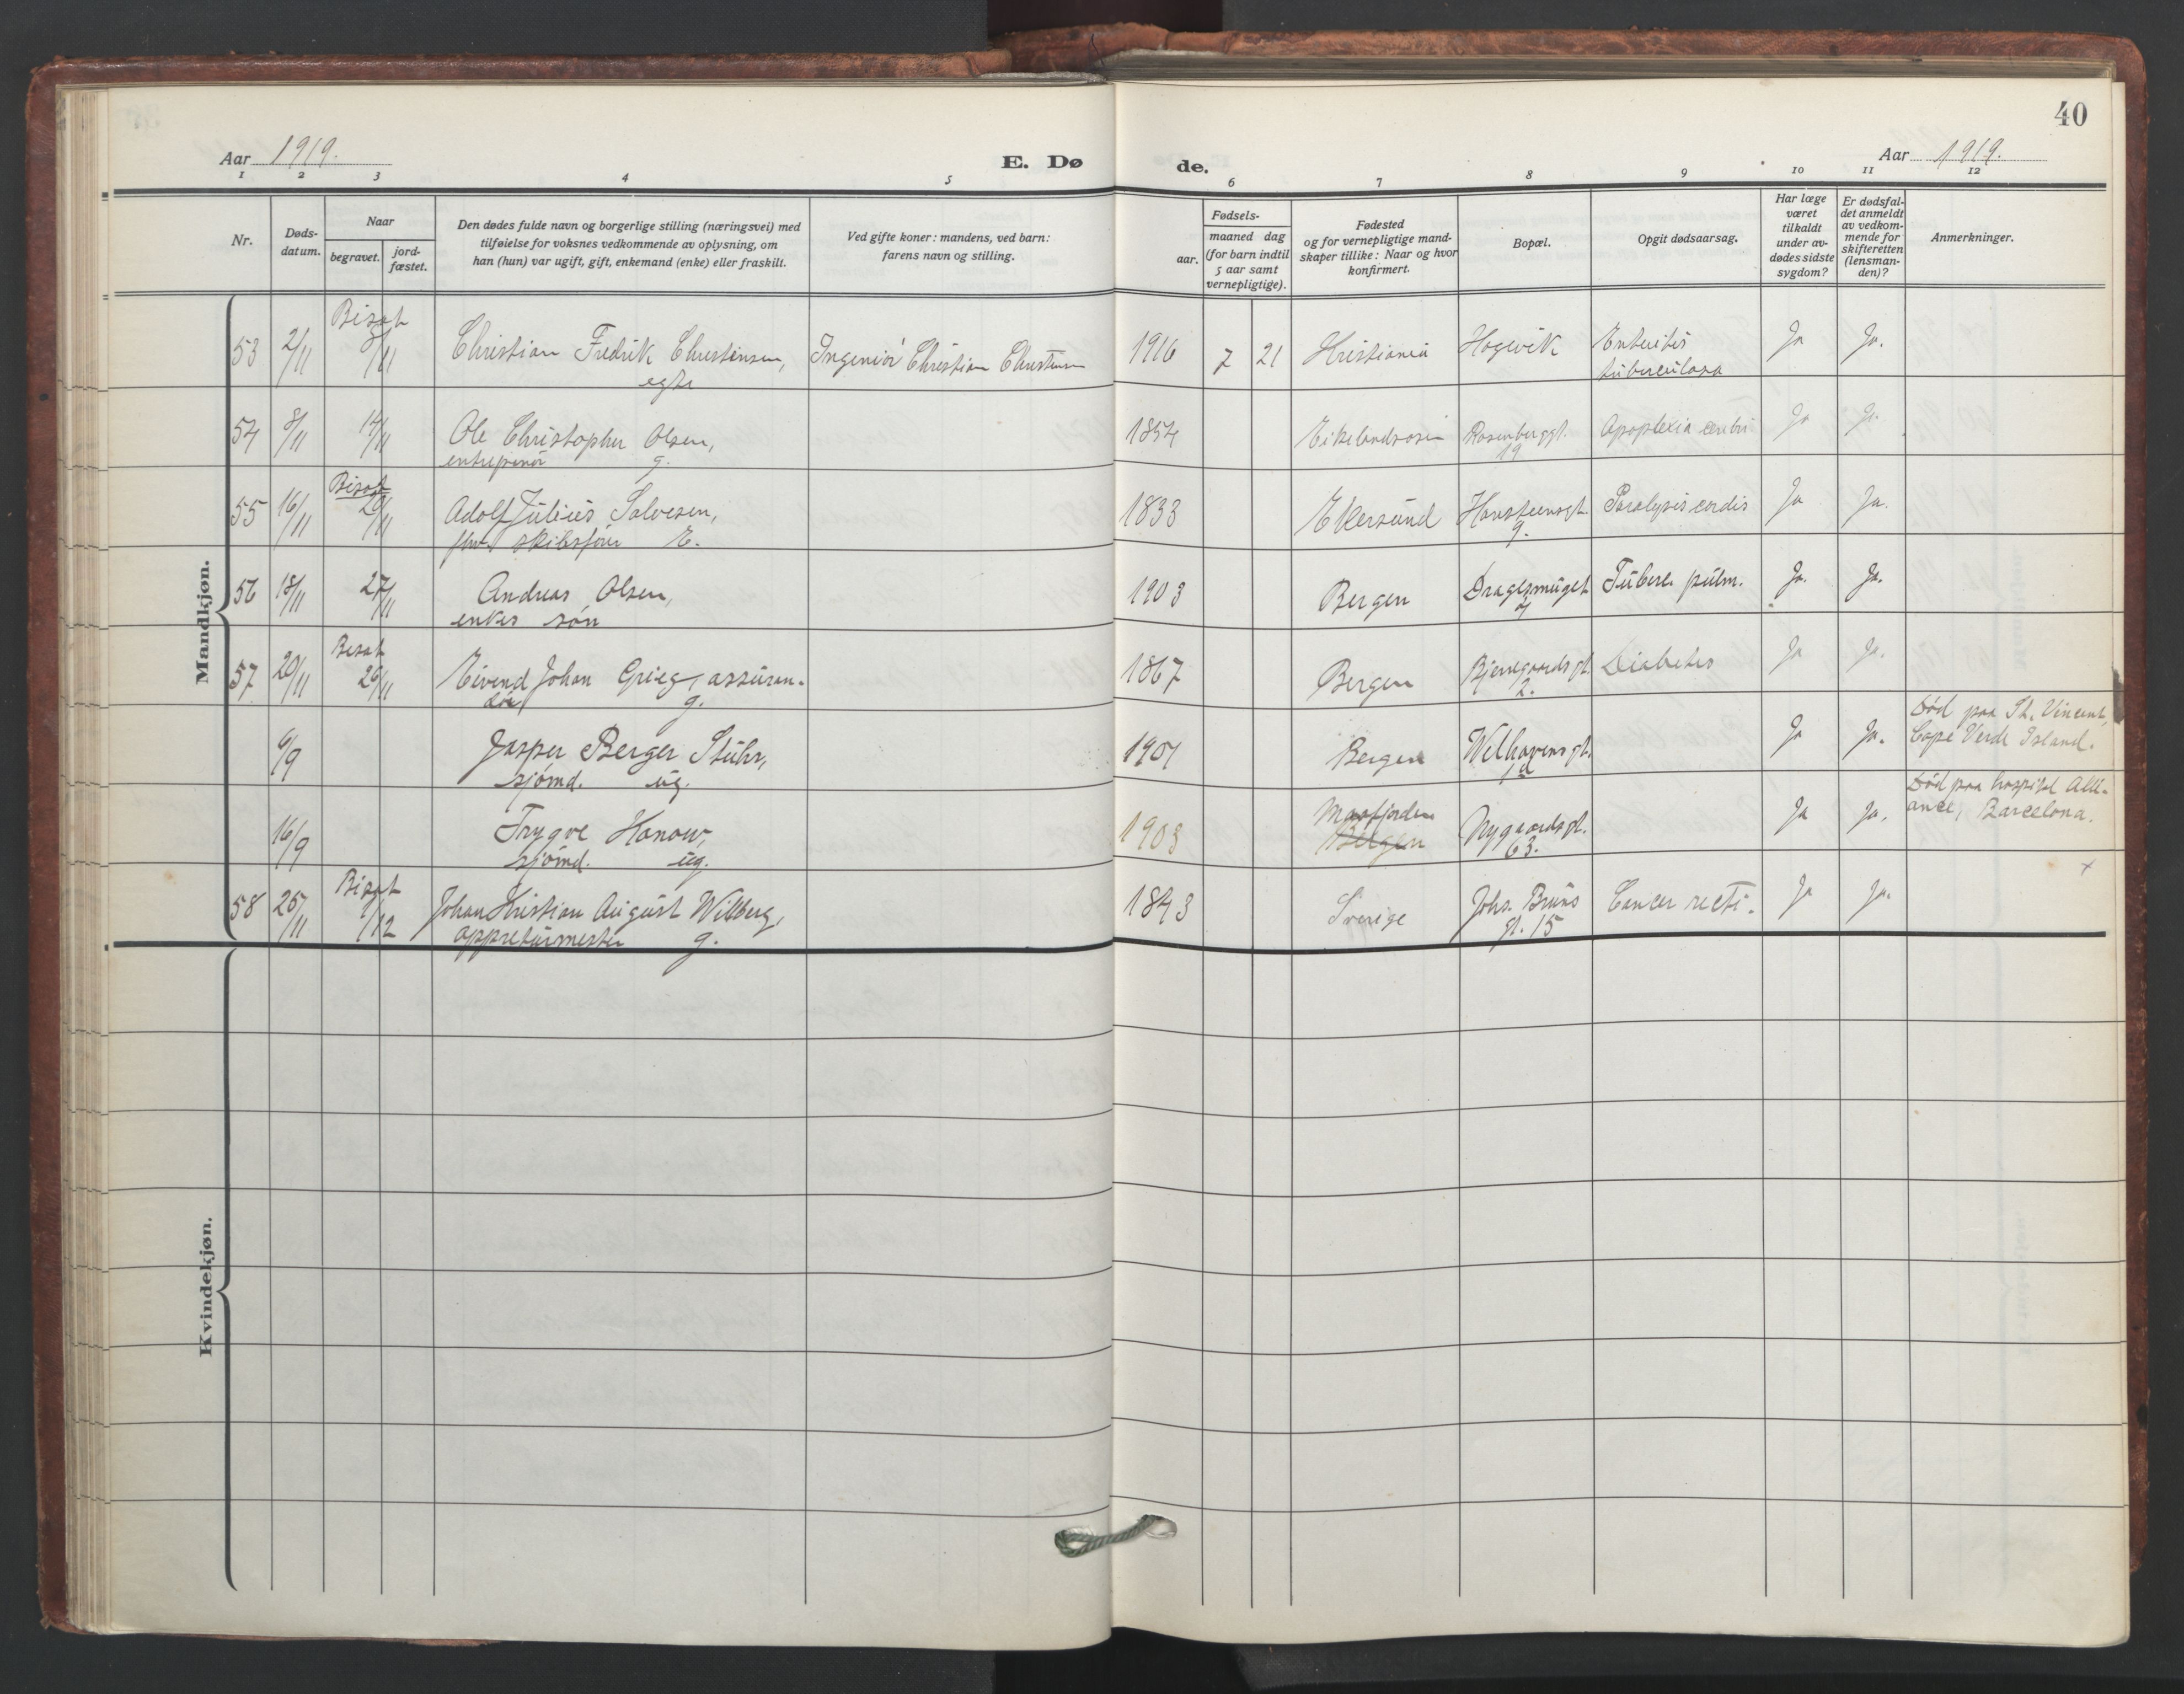 40
Aar 1919.
E. Dø
de.
Aar 1919.
1 2 3 4 5 6 7 8 9 10 11 12
Nr.
Døds-
datum.
Naar
begravet.
jord-
fæstet.
Den dødes fulde navn og borgerlige stilling (næringsvei) med
tilføielse for voksnes vedkommende av oplysning, om
han (hun) var ugift, gift, enkemand (enke) eller fraskilt.
Ved gifte koner: mandens, ved barn:
farens navn og stilling.
Fødsels-
aar.
maaned dag
(for barn indtil
5 aar samt
vernepligtige).
Fødested
og for vernepligtige mand-
skaper tillike: Naar og hvor
konfirmert.
Bopæl.
Opgit dødsaarsag.
Har læge
været
tilkaldt
under av-
dødes sidste
sygdom?
Er dødsfal-
det anmeldt
av vedkom-
mende for
skifteretten
(lensman-
den)?
Anmerkninger.
Mandkjøn.
Bisat
53 2/11 8/11 Christian Fredrik Christensen, Ingeniör Christian Christensen 1916 7 21 Kristiania Hogvik Enteritis Ja Ja.
egte tuberculosa
54 8/11 14/11 Ole Christopher Olsen, 1854 Eikelandsosen Rosenberggt. Apoplexia cerebri Ja Ja.
entreprenör g. 19
Bisat
55 16/11 20/11 Adolf Julius Salvesen, 1833 Ekersund Hansteensgt. Paralysis cordis Ja Ja.
fhv. skibsförer E. 9.
56 18/11 27/11 Andreas Olsen, 1903 Bergen Dragesmuget Tuberc. pulm. Ja. Ja.
enkes sön
Bisat
57 20/11 26/11 Eivend Johan Grieg, assuran- 1867 Bergen Bjerregaardsgt. Diabetes Ja Ja.
dör g. 2.
6/9 Jasper Berger Stuhr, 1901 Bergen Welhavensgt. Ja Ja. Död paa St. Vincent,
sjömd. ug. 1d Cape Verde Island.
16/9 Trygve Hanow, 1903 Maafjorden Nygaardsgt. Ja Ja. Död paa hospital Alli-
sjömd. ug. Bergen 63. ance, Barcelona.
Bisat
58 25/11 1/12 Johan Kristian August Wilberg, 1843 Sverige Johs. Bruns Cancer recti. Ja Ja.
appreturmester g. gt. 15
Kvindekjøn.